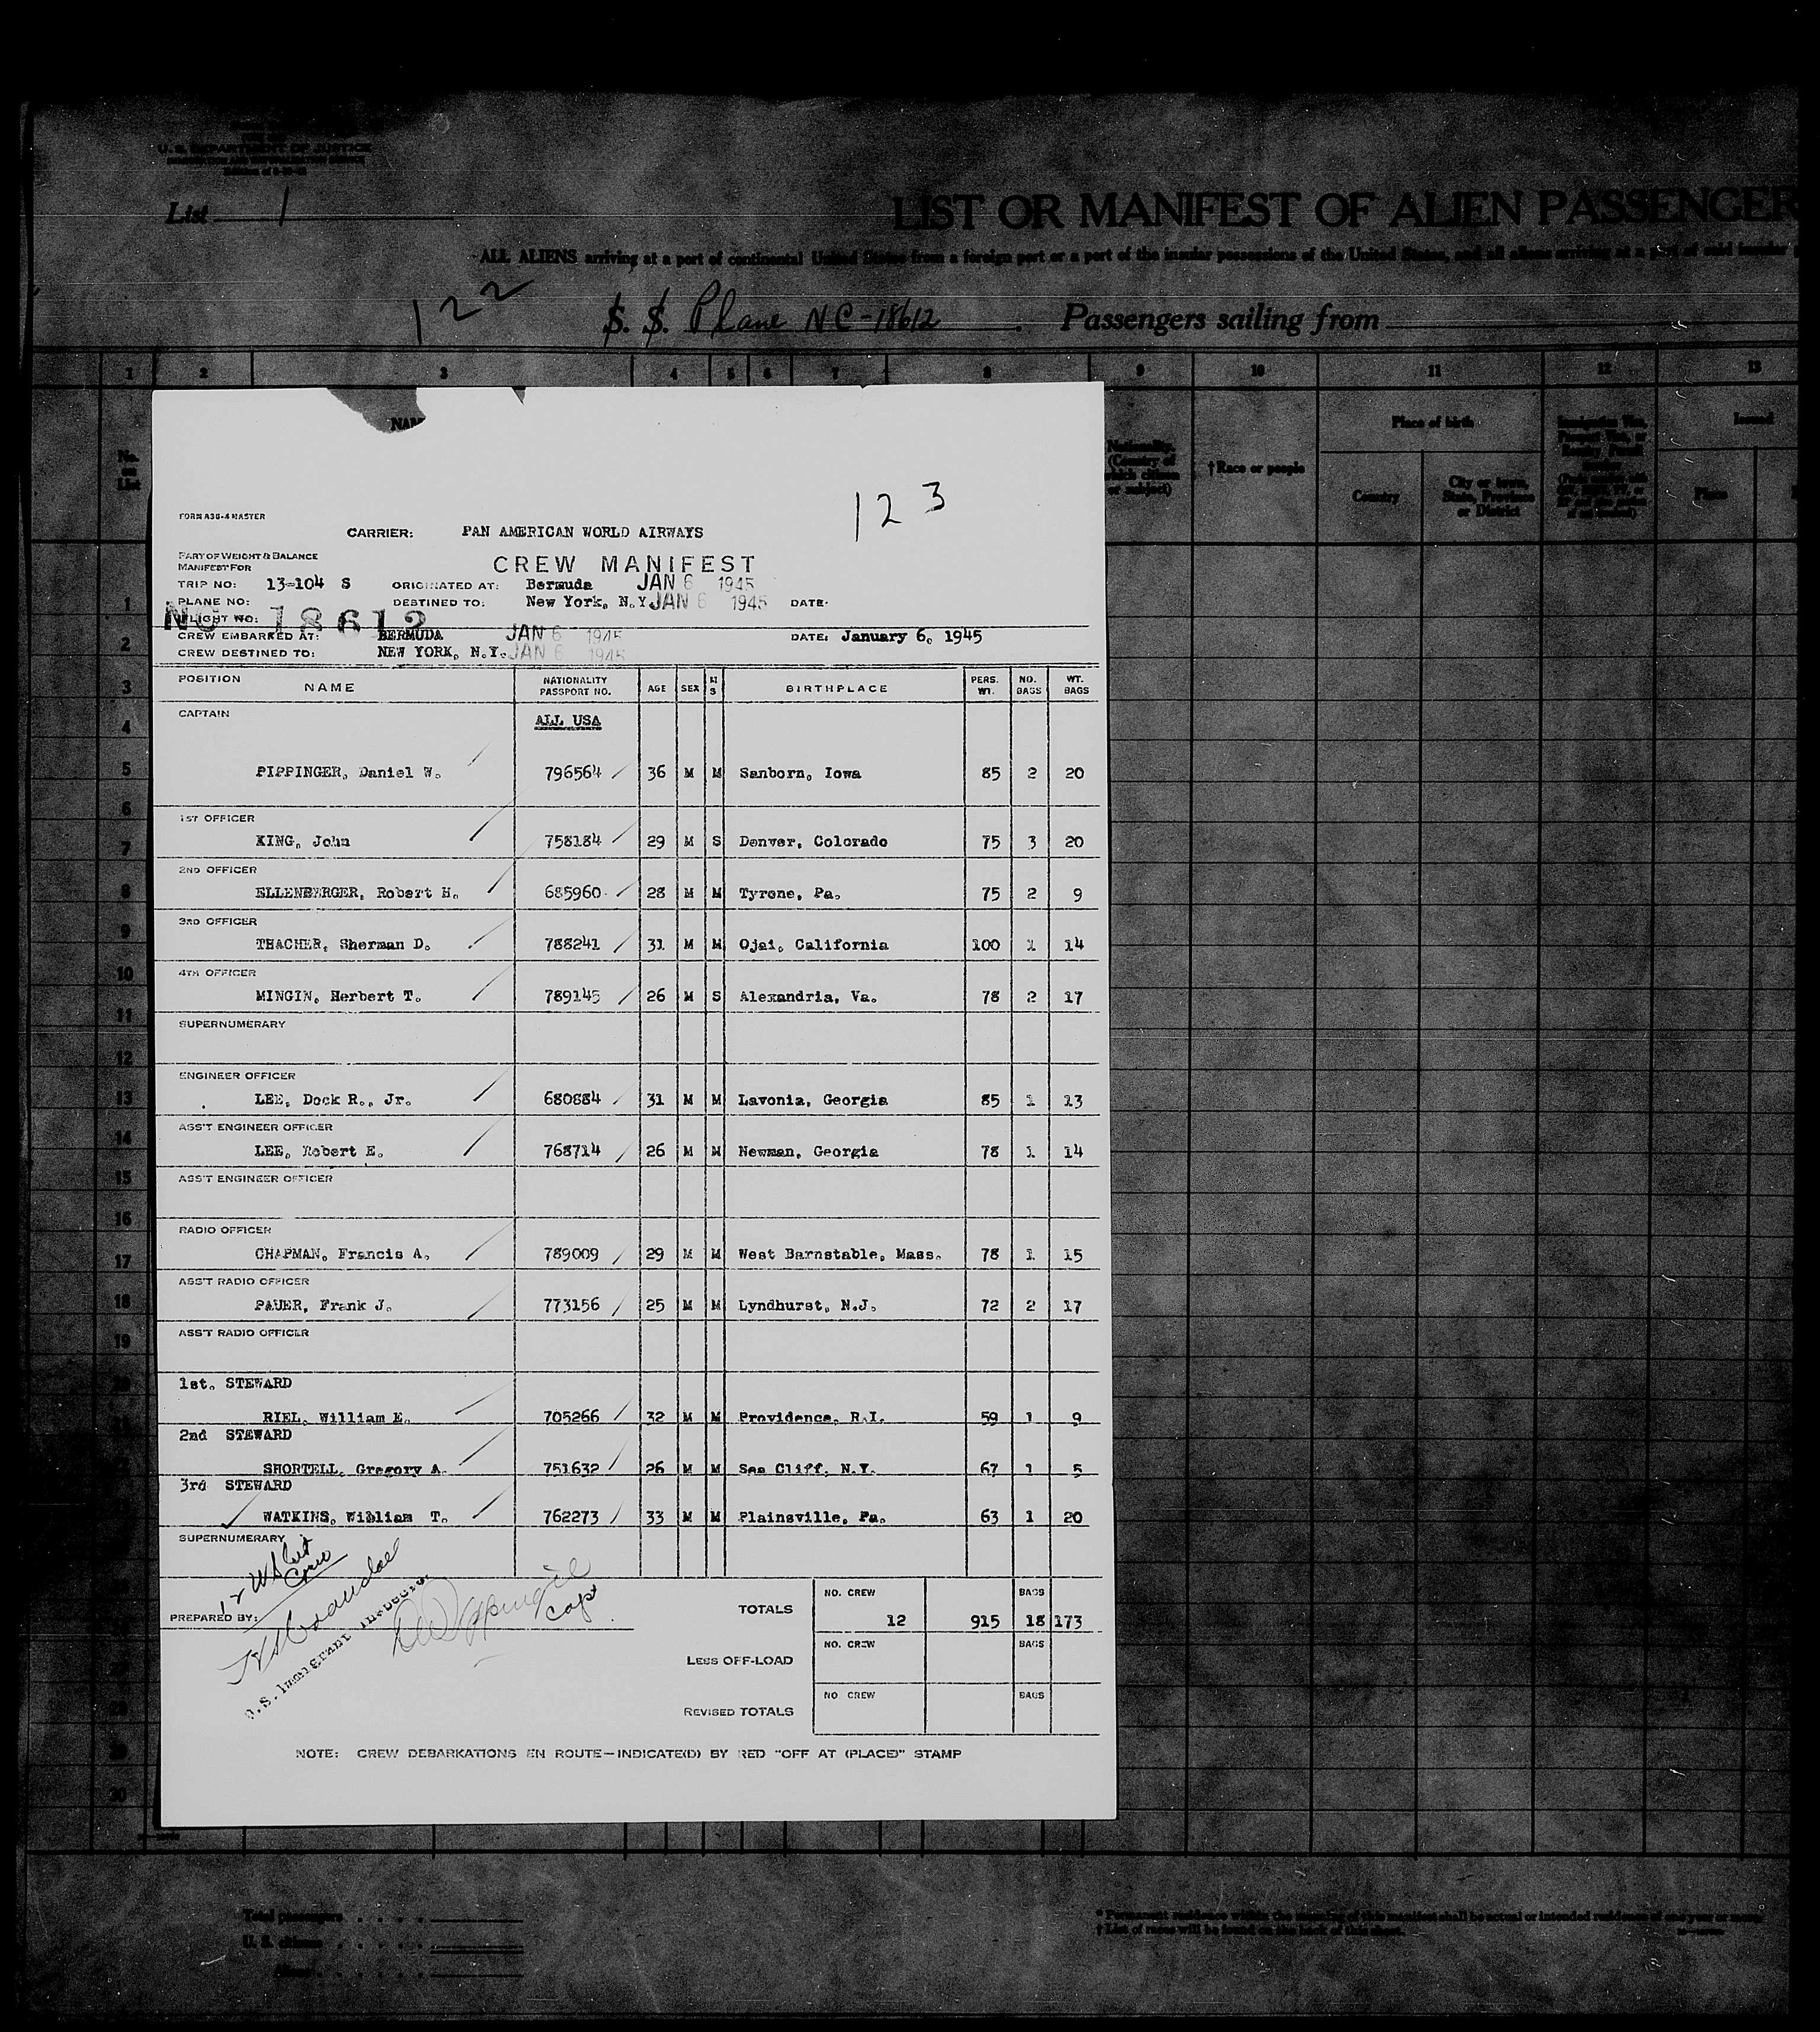 U. S. DEPARTMENT OF JUSTICE
List 1
LIST OR MANIFEST OF ALIEN PASSENGER
ALL ALIENS arriving at a port of continental United States from a foreign port or a port of the insular possessions of the United States, and all aliens arriving at a port of said insular
122
S. S. Plane NC-18612 . Passengers sailing from
1 2 3 4 5 6 7 8 9 10 11 12 13
NAM
No. on List
Nationality. (Country of which citizen or subject)
†Race or people
Place of birth
Country
City or town, State, Province or District
Issued
Place
123
FORM A30-4 MASTER
CARRIER: PAN AMERICAN WORLD AIRWAYS
PART OF WEIGHT & BALANCE
MANIFEST FOR
CREW MANIFEST
TRIP NO: 13-104 S ORIGINATED AT: Bermuda JAN 6 1945
PLANE NO: DESTINED TO: New York, N.Y. JAN 6 1945 DATE:
NC 18612
FLIGHT NO:
CREW EMBARKED AT: BERMUDA JAN 6 1945 DATE: January 6, 1945
CREW DESTINED TO: NEW YORK, N.Y. JAN 6 1945
POSITION NAME NATIONALITY PASSPORT NO. AGE SEX M S BIRTHPLACE PERS. WT. NO. BAGS WT. BAGS
CAPTAIN ALL USA
PIPPINGER, Daniel W. 796564 36 M M Sanborn, Iowa 85 2 20
1ST OFFICER
KING, John 758184 29 M S Denver, Colorado 75 3 20
2ND OFFICER
ELLENBERGER, Robert H. 685960 28 M M Tyrone, Pa. 75 2 9
3RD OFFICER
THACHER, Sherman D. 788241 31 M M Ojai, California 100 1 14
4TH OFFICER
MINGIN, Herbert T. 789145 26 M S Alexandria, Va. 78 2 17
SUPERNUMERARY
ENGINEER OFFICER
LEE, Dock R., Jr. 680884 31 M M Lavonia, Georgia 85 1 13
ASS'T ENGINEER OFFICER
LEE, Robert E. 768714 26 M M Newman, Georgia 78 1 14
ASS'T ENGINEER OFFICER
RADIO OFFICER
CHAPMAN, Francis A. 789009 29 M M West Barnstable, Mass. 78 1 15
ASS'T RADIO OFFICER
PAUER, Frank J. 773156 25 M M Lyndhurst, N.J. 72 2 17
ASS'T RADIO OFFICER
1st. STEWARD
RIEL, William E. 705266 32 M M Providence, R.I. 59 1 9
2nd STEWARD
SHORTELL, Gregory A. 751632 26 M M Sea Cliff, N.Y. 67 1 5
3rd STEWARD
WATKINS, Wibliam T. 762273 33 M M Plainsville, Pa. 63 1 20
SUPERNUMERARY
12 US Cit Crew
PREPARED BY:
U.S. Immigrant Inspector.
Capt
TOTALS NO. CREW 12 915 BAGS 18 173
LESS OFF-LOAD NO. CREW BAGS
REVISED TOTALS NO CREW BAGS
NOTE: CREW DEBARKATIONS EN ROUTE—INDICATE(D) BY RED "OFF AT (PLACE)" STAMP
Total passengers
U. S. citizens
Aliens
* Permanent residence within the meaning of this manifest shall be actual or intended residence of one year or more.
† List of races will be found on the back of this sheet.